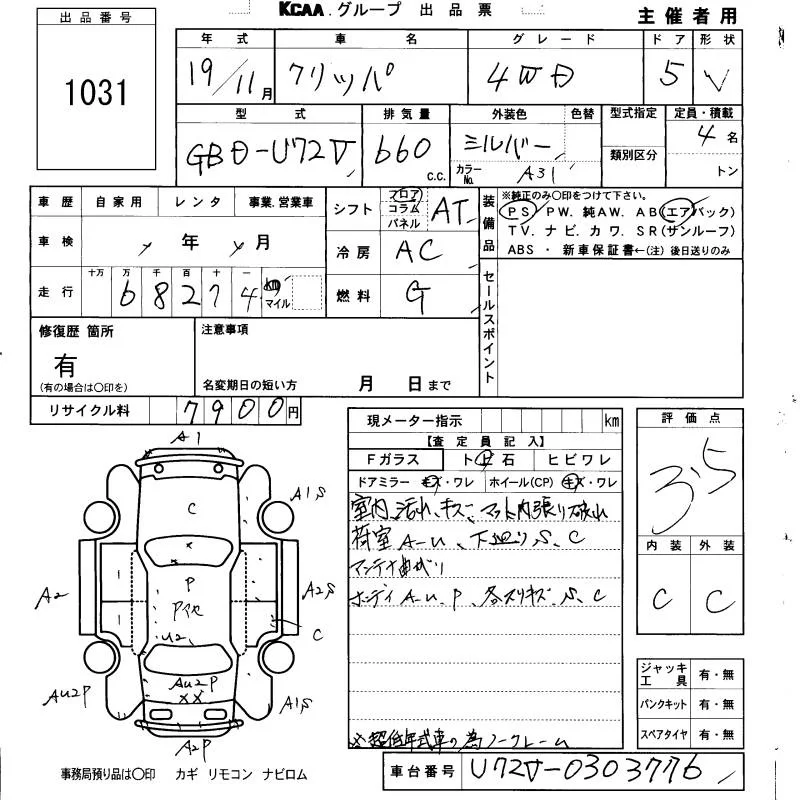 KCAA.グループ 出品票
主催者用
出品番号
1031
年式 車名 グレード ドア 形状
19/11月 クリッパ 4WD 5 V
型式 排気量 外装色 色替 型式指定 定員・積載
GBD-U72V 660 c.c. シルバー カラーNo. A31 類別区分 4名
トン
車歴 自家用 レンタ 事業.営業車
車検 年 月
走行 十万 万 千 百 十 一
6 8 2 7 4 km マイル
シフト フロア コラム パネル AT
冷房 AC
燃料 G
装備品
※純正のみ〇印をつけて下さい。
PS PW. 純AW. AB(エアバック)
TV. ナビ. カワ. SR(サンルーフ)
ABS ・ 新車保証書←(注) 後日送りのみ
セールスポイント
修復歴 箇所
有
(有の場合は〇印を)
注意事項
名変期日の短い方 月 日まで
リサイクル料 7900円
現メーター指示 km
【査定員記入】
Fガラス ト ビ 石 ヒビワレ
ドアミラー キズ・ワレ ホイール(CP) キズ・ワレ
室内、汚れ、キズ、マット内張り破れ
荷室 A-U、下廻り、S、C
アンテナ曲がり
ボディ A-U、P、各スリキズ、S、C
※超低年式車の為ノークレーム
評価点
3.5
内装 外装
C C
ジャッキ工具 有・無
パンクキット 有・無
スペアタイヤ 有・無
A1
A1S
C
A2
P
A2S
U2
C
AU2P
AU2P
XX
A1S
A2P
事務局預り品は〇印 カギ リモコン ナビロム
車台番号 U72V-0303776